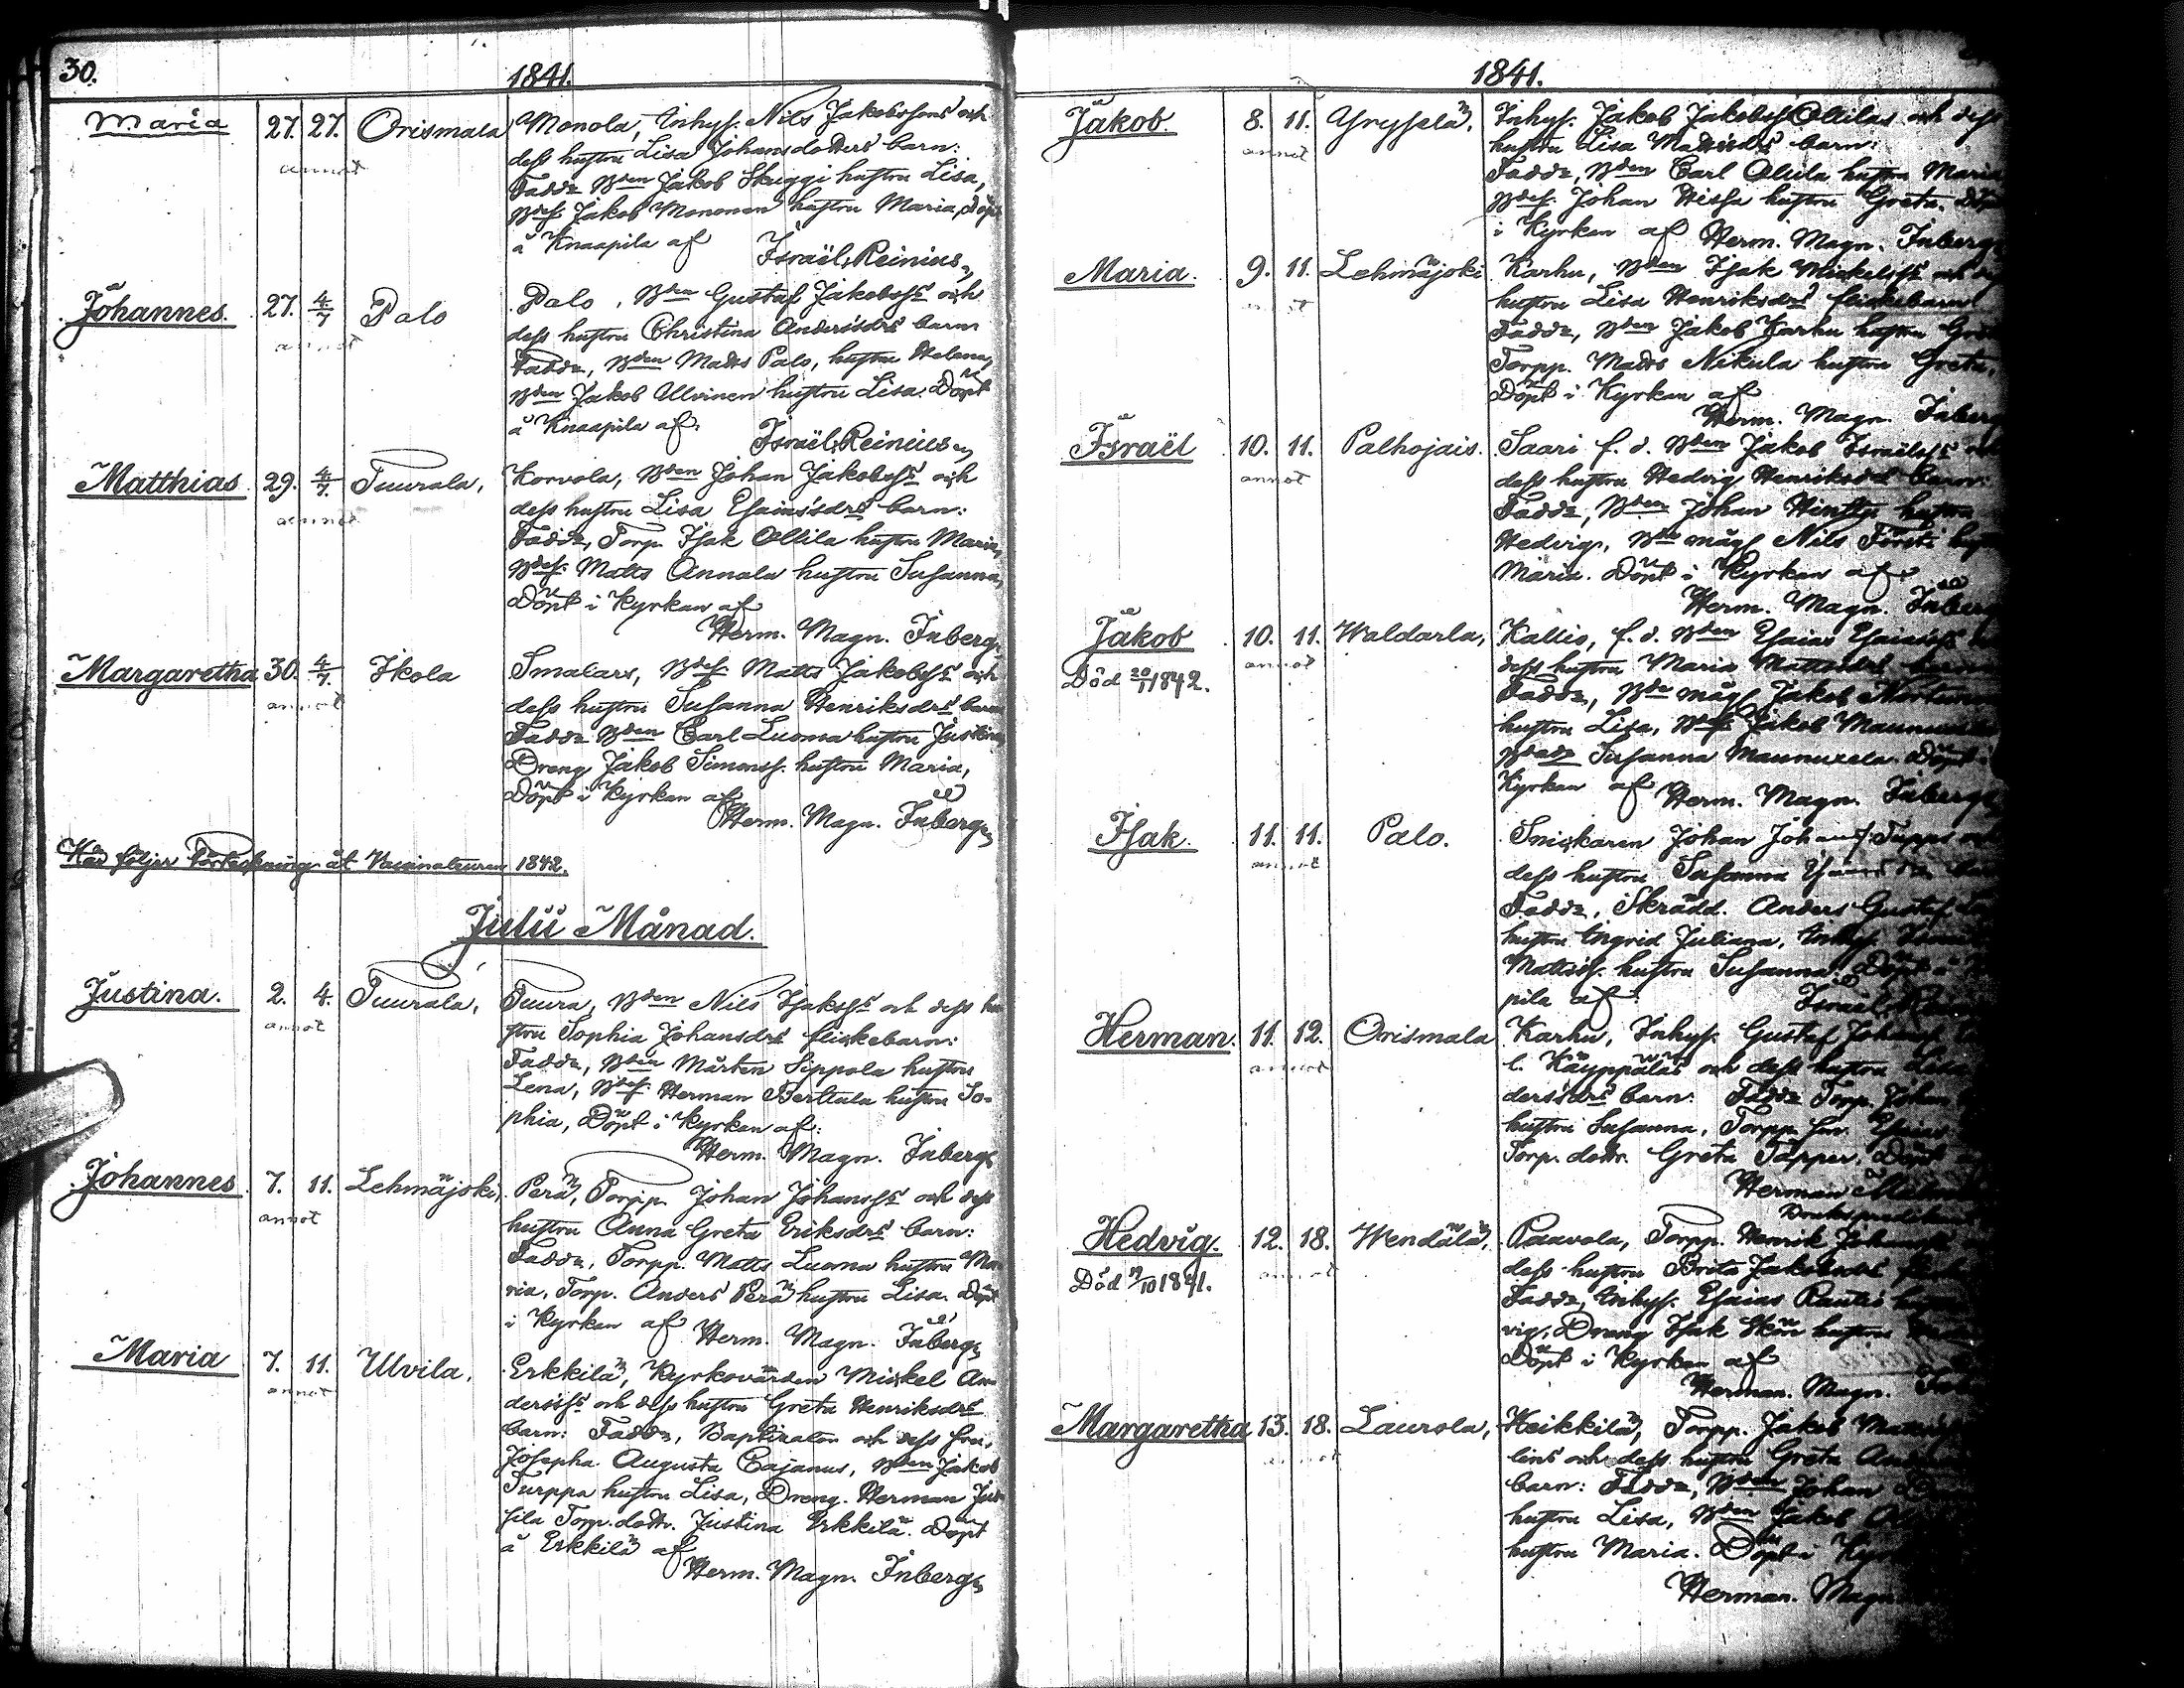 30. 1841.
Maria 27. 27. Orismala Monola, Inhys. Nils Jakobssons och
annot dess hustru Lisa Johansdotters barn:
Faddr Bden Jakob Skuggi hustru Lisa,
Bdes. Jakob Mononen hustru Maria, Döpt
å Knaapila af Israël Reinius
Johannes. 27. 4/7 Palo Palo, Bden Gustaf Jakobss och
annot dess hustru Christina Andersdrs barn
Faddr, Bden Matts Palo, hustru Helena,
Bden Jakob Ulvinen hustru Lisa. Döpt
å Knaapila af: Israël Reinius
Matthias. 29. 4/7. Tuurala, Korvola, Bden Johan Jakobss och
annot dess hustru Lisa Esaiasdrs barn:
Faddr, Torp. Isak Ollila hustru Maria,
Bdes. Matts Annala hustru Susanna,
Döpt i Kyrkan af
Herm. Magn. Inberg.
Margaretha 30. 4/7. Ikola Smalars, Bdes. Matts Jakobss och
annot dess hustru Susanna Henriksdrs barn
Faddr Bden Carl Luoma hustru Justina
Dreng Jakob Simonss. hustru Maria,
Döpt i Kyrkan af
Herm. Magn. Inberg
Här följer Förteckning åt Vaccinateuren 1842.
Julii Månad.
Justina. 2. 4. Tuurala, Tuura, Bden Nils Isakss och dess hu
annot stru Sophia Johansdrs flickebarn:
Faddr, Bden Mårten Sippola hustru
Lena, Bdes. Herman Perttula hustru So-
phia, Döpt i Kyrkan af:
Herm. Magn. Inberg
Johannes. 7. 11. Lehmäjoki, Perä, Torpp. Johan Johanss och dess
annot hustru Anna Greta Eriksdrs barn:
Faddr, Torpp. Matts Luoma hustru Ma
ria, Torp. Anders Perä hustru Lisa. Döpt
i Kyrkan af Herm. Magn. Inberg
Maria 7. 11. Ulvila. Erkkilä, Kyrkovärden Mickel An-
annot derss och dess hustru Greta Henriksdrs
barn: Faddr, Baptizator och dess fru,
Josepha Augusta Cajanus, Bden Jakob
Turppa hustru Lisa, Dreng. Herman Jus
sila Torp. dottr. Justina Erkkilä. Döpt
å Erkkilä af
Herm. Magn. Inberg
1841.
Jakob. 8. 11. Yryselä, Inhys. Jakob Jakobss Ollilas och dess
annot hustru Lisa Mattsdrs barn:
Faddr, Bden Carl Ollila hustru Maria
Bdes. Johan Hissa hustru Greta. Döpt
i Kyrkan af Herm. Magn. Inberg
Maria. 9. 11. Lehmäjoki Karhu, Bden Isak Mickelss och
hustru Lisa Henriksdrs flickebarn
Faddr, Bden Jakob Karhu hustru
Torpp. Matts Nikula hustru Greta,
Döpt i Kyrkan af
Herm. Magn. Inberg
Israël 10. 11. Palhojais. Saari f. d. Bden Jakob Israëlss
annot dess hustru Hedvig Henriksdrs barn:
Faddr, Bden Johan Hintsa hustru
Hedvig, Bde måg Nils Försti
Maria. Döpt i Kyrkan af:
Herm. Magn. Inberg
Jakob 10. 11. Waldarla, Kallio, f. d. Bden Esaias Esaiass
Död 20/1 1842. annot dess hustru Maria Mattsdrs
Faddr, Bde måg Jakob
hustru Lisa, Bdes. Jakob
Susanna Maunuxela. Döpt i
Kyrkan af Herm. Magn. Inberg
Isak. 11. 11. Palo. Snickaren Johan Johanss Tupps
annot dess hustru Susanna
Faddr, Skrädd. Anders Gustaf
hustru Ingrid Juliana, Inhys.
Mattss. hustru Susanna. Döpt å
pila af: Israël
Herman. 11. 12. Orismala Karhu, Inhys. Gustaf
annot l. Käyppäläs och dess hustru Lisa
dersdrs barn: Faddr Torp. Johan
hustru Susanna, Torpp.
Torp. dottr. Greta Tapper. Döpt
Herman
Hedvig. 12. 18. Wendälä, Paavola, Torpp. Henrik
Död 19/10 1841. annot dess hustru Brita Jakobsdrs
Faddr, Inhys. Esaias Rauto
vig, Dreng Isak hustru
Döpt i Kyrkan af
Herman. Magn.
Margaretha 13. 18. Laurola, Heikkilä, Torpp. Jakob
annot lins och dess hustru Greta
barn: Faddr, Bden Johan
hustru Lisa, Bden Jakob
hustru Maria. Döpt i
Herman. Magn.